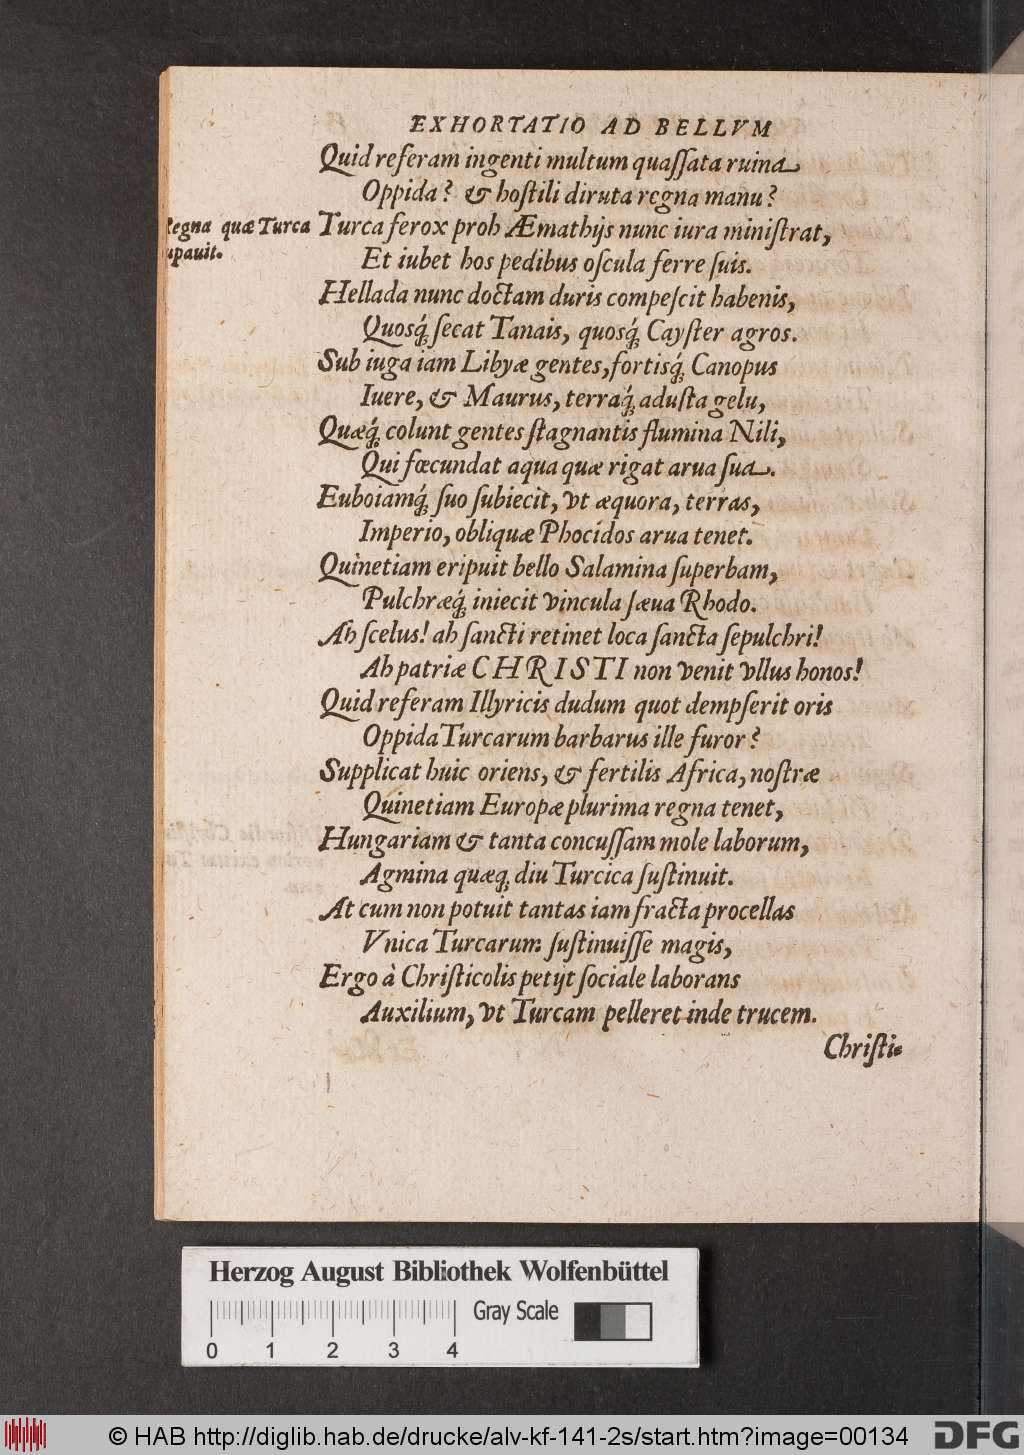 EXHORTATIO AD BELLVM
Quid referam ingenti multum quaſſata ruina
Oppida? & hoſtili diruta regna manu?
Regna quæ Turca
upauit.
Turca ferox proh Æmathijs nunc iura miniſtrat,
Et iubet hos pedibus oſcula ferre ſuis.
Hellada nunc doctam duris compeſcit habenis,
Quosq́; ſecat Tanais, quosq́; Cayſter agros.
Sub iuga iam Libyæ gentes, fortisq́; Canopus
Iuere, & Maurus, terraq́; aduſta gelu,
Quæq́; colunt gentes ſtagnantis flumina Nili,
Qui fœcundat aqua quæ rigat arua ſua.
Euboiamq́; ſuo ſubiecit, vt æquora, terras,
Imperio, obliquæ Phocidos arua tenet.
Quinetiam eripuit bello Salamina ſuperbam,
Pulchræq́; iniecit vincula ſæua Rhodo.
Ah ſcelus! ah ſancti retinet loca ſancta ſepulchri!
Ah patriæ CHRISTI non venit vllus honos!
Quid referam Illyricis dudum quot dempſerit oris
Oppida Turcarum barbarus ille furor?
Supplicat huic oriens, & fertilis Africa, noſtræ
Quinetiam Europæ plurima regna tenet,
Hungariam & tanta concuſſam mole laborum,
Agmina quæq; diu Turcica ſuſtinuit.
At cum non potuit tantas iam fracta procellas
Vnica Turcarum ſuſtinuiſſe magis,
Ergo à Chriſticolis petijt ſociale laborans
Auxilium, vt Turcam pelleret inde trucem.
Chriſti-
Herzog August Bibliothek Wolfenbüttel
Gray Scale
0 1 2 3 4
© HAB http://diglib.hab.de/drucke/alv-kf-141-2s/start.htm?image=00134
DFG